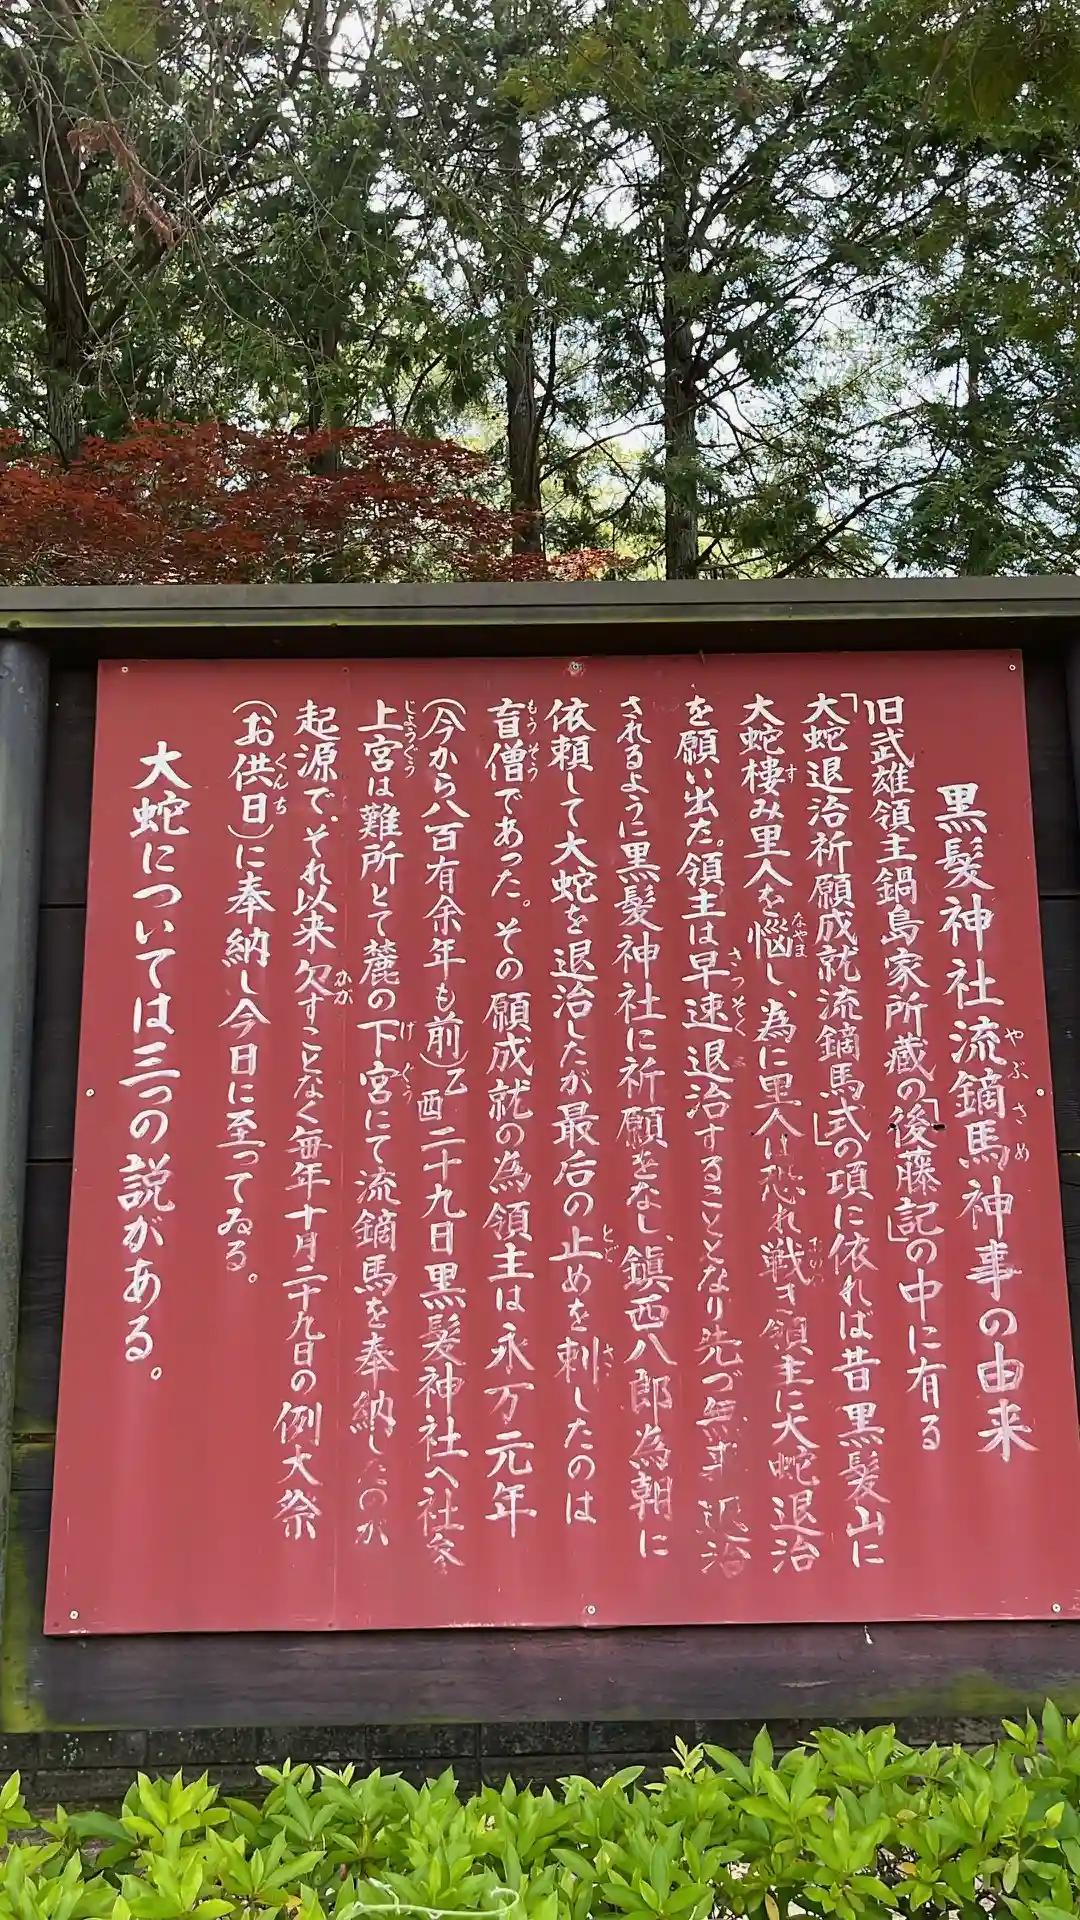 黒髪神社流鏑馬神事の由来
旧武雄領主鍋島家所蔵の「後藤記」の中に有る
「大蛇退治祈願成就流鏑馬式」の項に依れば昔黒髪山に
大蛇棲み里人を悩し、為に里人は恐れ戦き領主に大蛇退治
を願い出た。領主は早速退治することとなり先づ無事退治
されるように黒髪神社に祈願をなし、鎭西八郎為朝に
依頼して大蛇を退治したが最后の止めを刺したのは
盲僧であった。その願成就の為領主は永万元年
(今から八百有余年も前)乙酉二十九日黒髪神社へ社参
上宮は難所とて麓の下宮にて流鏑馬を奉納したのが
起源で、それ以来欠すことなく毎年十月二十九日の例大祭
(お供日)に奉納し今日に至ってゐる。
大蛇については三っの説がある。
やぶさめ
す
なやま
さっそく
とど
さ
もうそう
じょうぐう
げぐう
かか
くんち